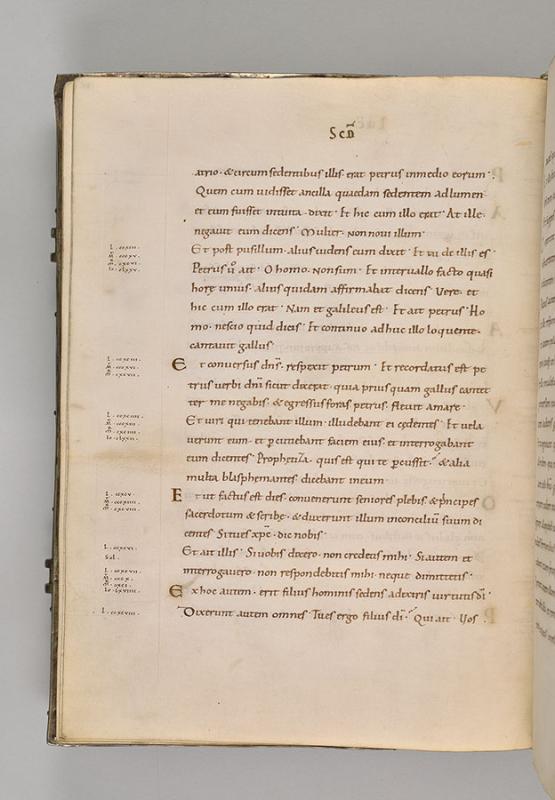 Scđ
atrio · & circum sedentibus illis erat petrus in medio eorum ·
Quem cum uidisset ancilla quaedam sedentem ad lumen
et cum fuisset intuita · dixit · Et hic cum illo erat · At ille ·
negauit eum dicens · Mulier · Non noui illum ·
Et post pusillum · alius uidens eum dixit · Et tu de illis es ·
Petrus ů ait · O homo · Non sum · Et interuallo facto quasi
horę unius · alius quidam affirmabat dicens · Vere · et
hic cum illo erat · Nam et galileus est · Et ait petrus · Ho
mo · nescio quid dicis · Et continuo adhuc illo loquente ·
cantauit gallus
Et conuersus dn̄s · respexit petrum · Et recordatus est pe
trus uerbi dn̄i sicut dixerat · quia prius quam gallus cantet
ter me negabis · & egressus foras petrus · fleuit amare ·
Et uiri qui tenebant illum · illudebant ei cędentes · Et uela
uerunt eum · et percutiebant faciem eius · et interrogabant
eum dicentes · Prophetiza · quis est qui te percussit · & alia
multa blasphemantes dicebant in eum
Et ut factus est dies · conuenerunt seniores plebis · & principes
sacerdotum & scribę · & duxerunt illum in concilium suum di
centes · Si tu es xp̄c · dic nobis ·
Et ait illis · Si uobis dixero · non credetis mihi · Si autem et
interrogauero · non respondebitis mihi · neque dimittetis ·
Ex hoc autem · erit filius hominis sedens a dextris uirtutis dī ·
Dixerunt autem omnes · Tu es ergo filius dī · Qui ait · Vos